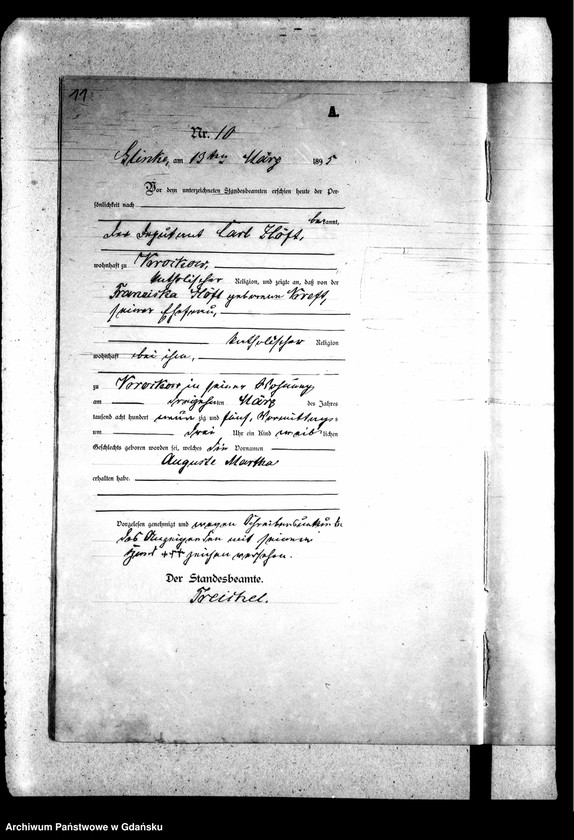 11
A.
Nr. 10
Glinke, am 13ten März 1895
Vor dem unterzeichneten Standesbeamten erschien heute der Per-
sönlichkeit nach
bekannt,
der Deputant Carl Höft,
wohnhaft zu
katholischer Religion, und zeigte an, daß von der
Franziska Höft geborene Kreft,
seiner Ehefrau,
katholischer Religion
wohnhaft bei ihm,
zu in seiner Wohnung
am dreizehnten März des Jahres
tausend acht hundert neunzig und fünf, Vormittags
um drei Uhr ein Kind weiblichen
Geschlechts geboren worden sei, welches die Vornamen
Auguste Martha
erhalten habe.
Vorgelesen genehmigt und wegen Schreibensunkunde
des Anzeigenden mit seinem
Handzeichen +++ versehen.
Der Standesbeamte.
Treichel.
Archiwum Państwowe w Gdańsku